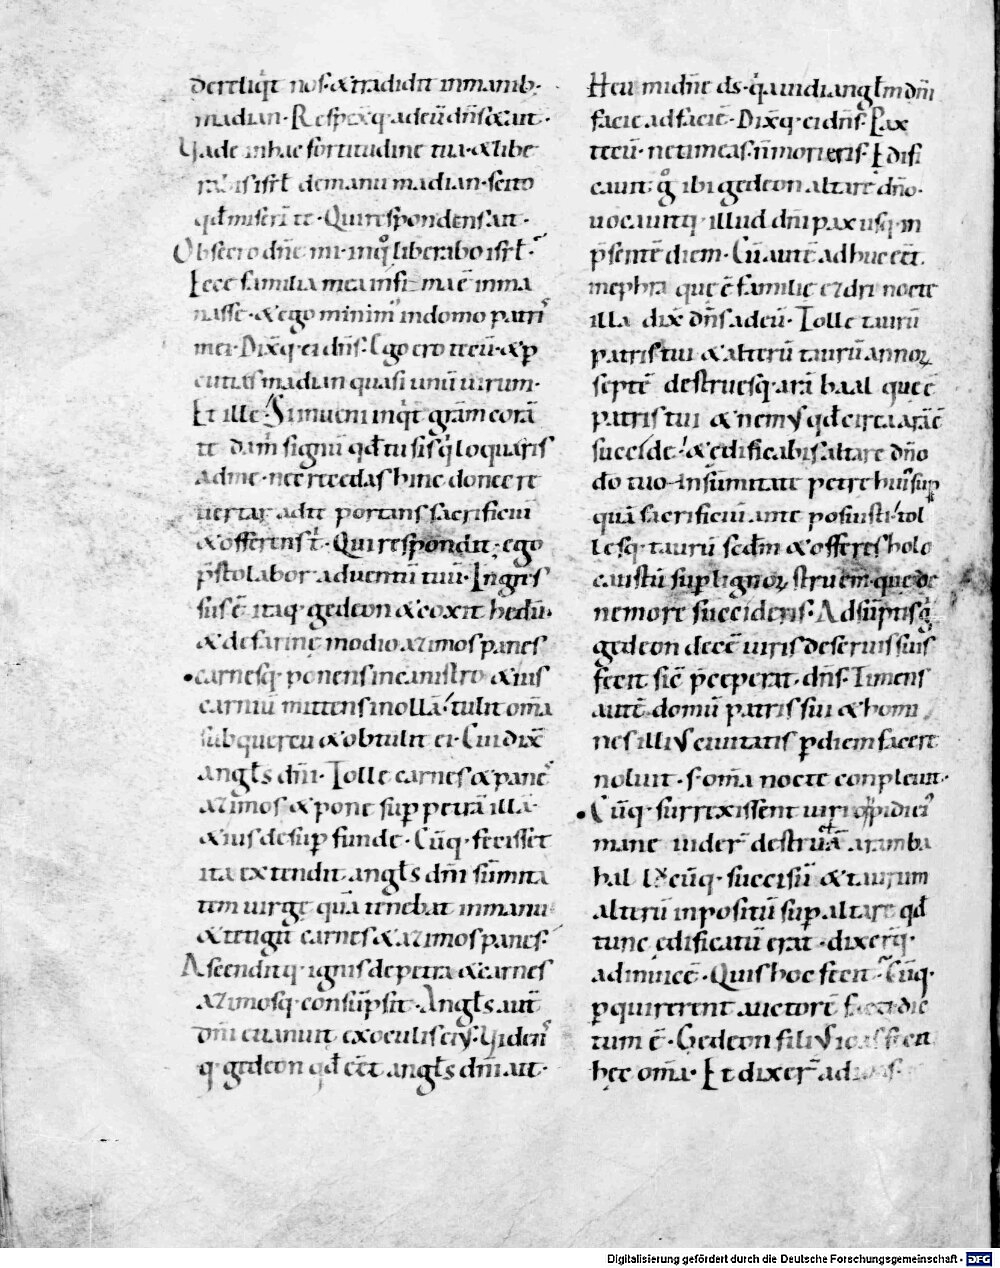 dereliq̇t nos· & tradidit inmanib·
madian· Respex̄q· adeū dn̄s & ait·
Vade inhac fortitudine tua· & libe
rabis isrl̄ demanu madian· scito
qđ miserī te· Qui respondens ait·
Obsecro dn̄e mi· inq̊ liberabo isrl̄·
Ecce familia mea infima ē inma
nasse· & ego minim᷒ indomo patris
mei· Dix̄q· ei dn̄s· Ego ero tecū· & ꝑ
cuties madian quasi unū uirum·
Et ille· Si inueni inq̇t gr̄am corā
te dam̄ signū qđ tu sis q̇ loquaris
adme· nec recedas hinc donec re
uertar adte portans sacrificiū
& offerens t̄· Qui respondit· ego
p̄stolabor aduentū tuū· Ingres
sus ē itaq· gedeon & coxit hedū·
& de farinę modio azimos panes
carnesq· ponens incanistro & ius
carniū mittens inollā· tulit om̄a
sub quercu & obtulit ei· Cui dix̄
angl̄s dn̄i· Tolle carnes & panes
azimos & pone suꝑ petrā illā·
& ius desuꝑ funde· Cūq· fecisset
ita extendit angl̄s dn̄i sūmita
tem uirgę quā tenebat inmanu
& tetigit carnes & azimos panes·
Ascenditq· ignis de petra & carnes
azimosq· consūpsit· Angl̄s aut̄
dn̄i euanuit exoculis ei᷒· Viden᷒
q· gedeon qđ eēt angl̄s dn̄i ait·
Heu mi dn̄e ds̄· q̇a uidi angl̄m dn̄i
facie adfaciē· Dix̄q· ei dn̄s· Pax
tecū· ne timeas· n̄ morieris· Edifi
cauit g̊ ibi gedeon altare dn̄o·
uocauitq· illud dn̄i pax usq· in
p̄sentē diem· Cū aut̄ adhuc eēt
inephra que ē familie ezdri nocte
illa dix̄ dn̄s adeū· Tolle taurū
patris tui & alterū taurū annoꝝ
septē destruesq· arā baal que ē
patris tui & nem᷒ qđ circa arā ē
succide· & ędificabis altare dn̄o
dō tuo insūmitate petre hui᷒ suꝑ
quā sacrificiū ante posuisti· tol
lesq· taurū secđm & offeres holo
caustū suꝑ lignoꝝ struem· que de
nemore succideris· Adsūptisq·
gedeon decē uiris de seruis suis
fecit sic̄ p̄ceperat dn̄s· Timens
autē domū patris sui & homi
nes illi᷒ ciuitatis ꝑ diem facere
noluit· s· om̄a nocte conpleuit·
Cūq· surrexissent uiri oppidi ei᷒
mane uider̄ destructā aram ba
hal lucūq· succisū & taurum
alterū inpositū suꝑ altare qđ
tunc ędificatū erat· dixer̄q·
adinuicē· Quis hoc fecit· Cūq·
ꝑquirerent auctorē facti dic
tum ē· Gedeon fili᷒ ioas fecit
hec om̄a· Et dixer̄ ad ioas·